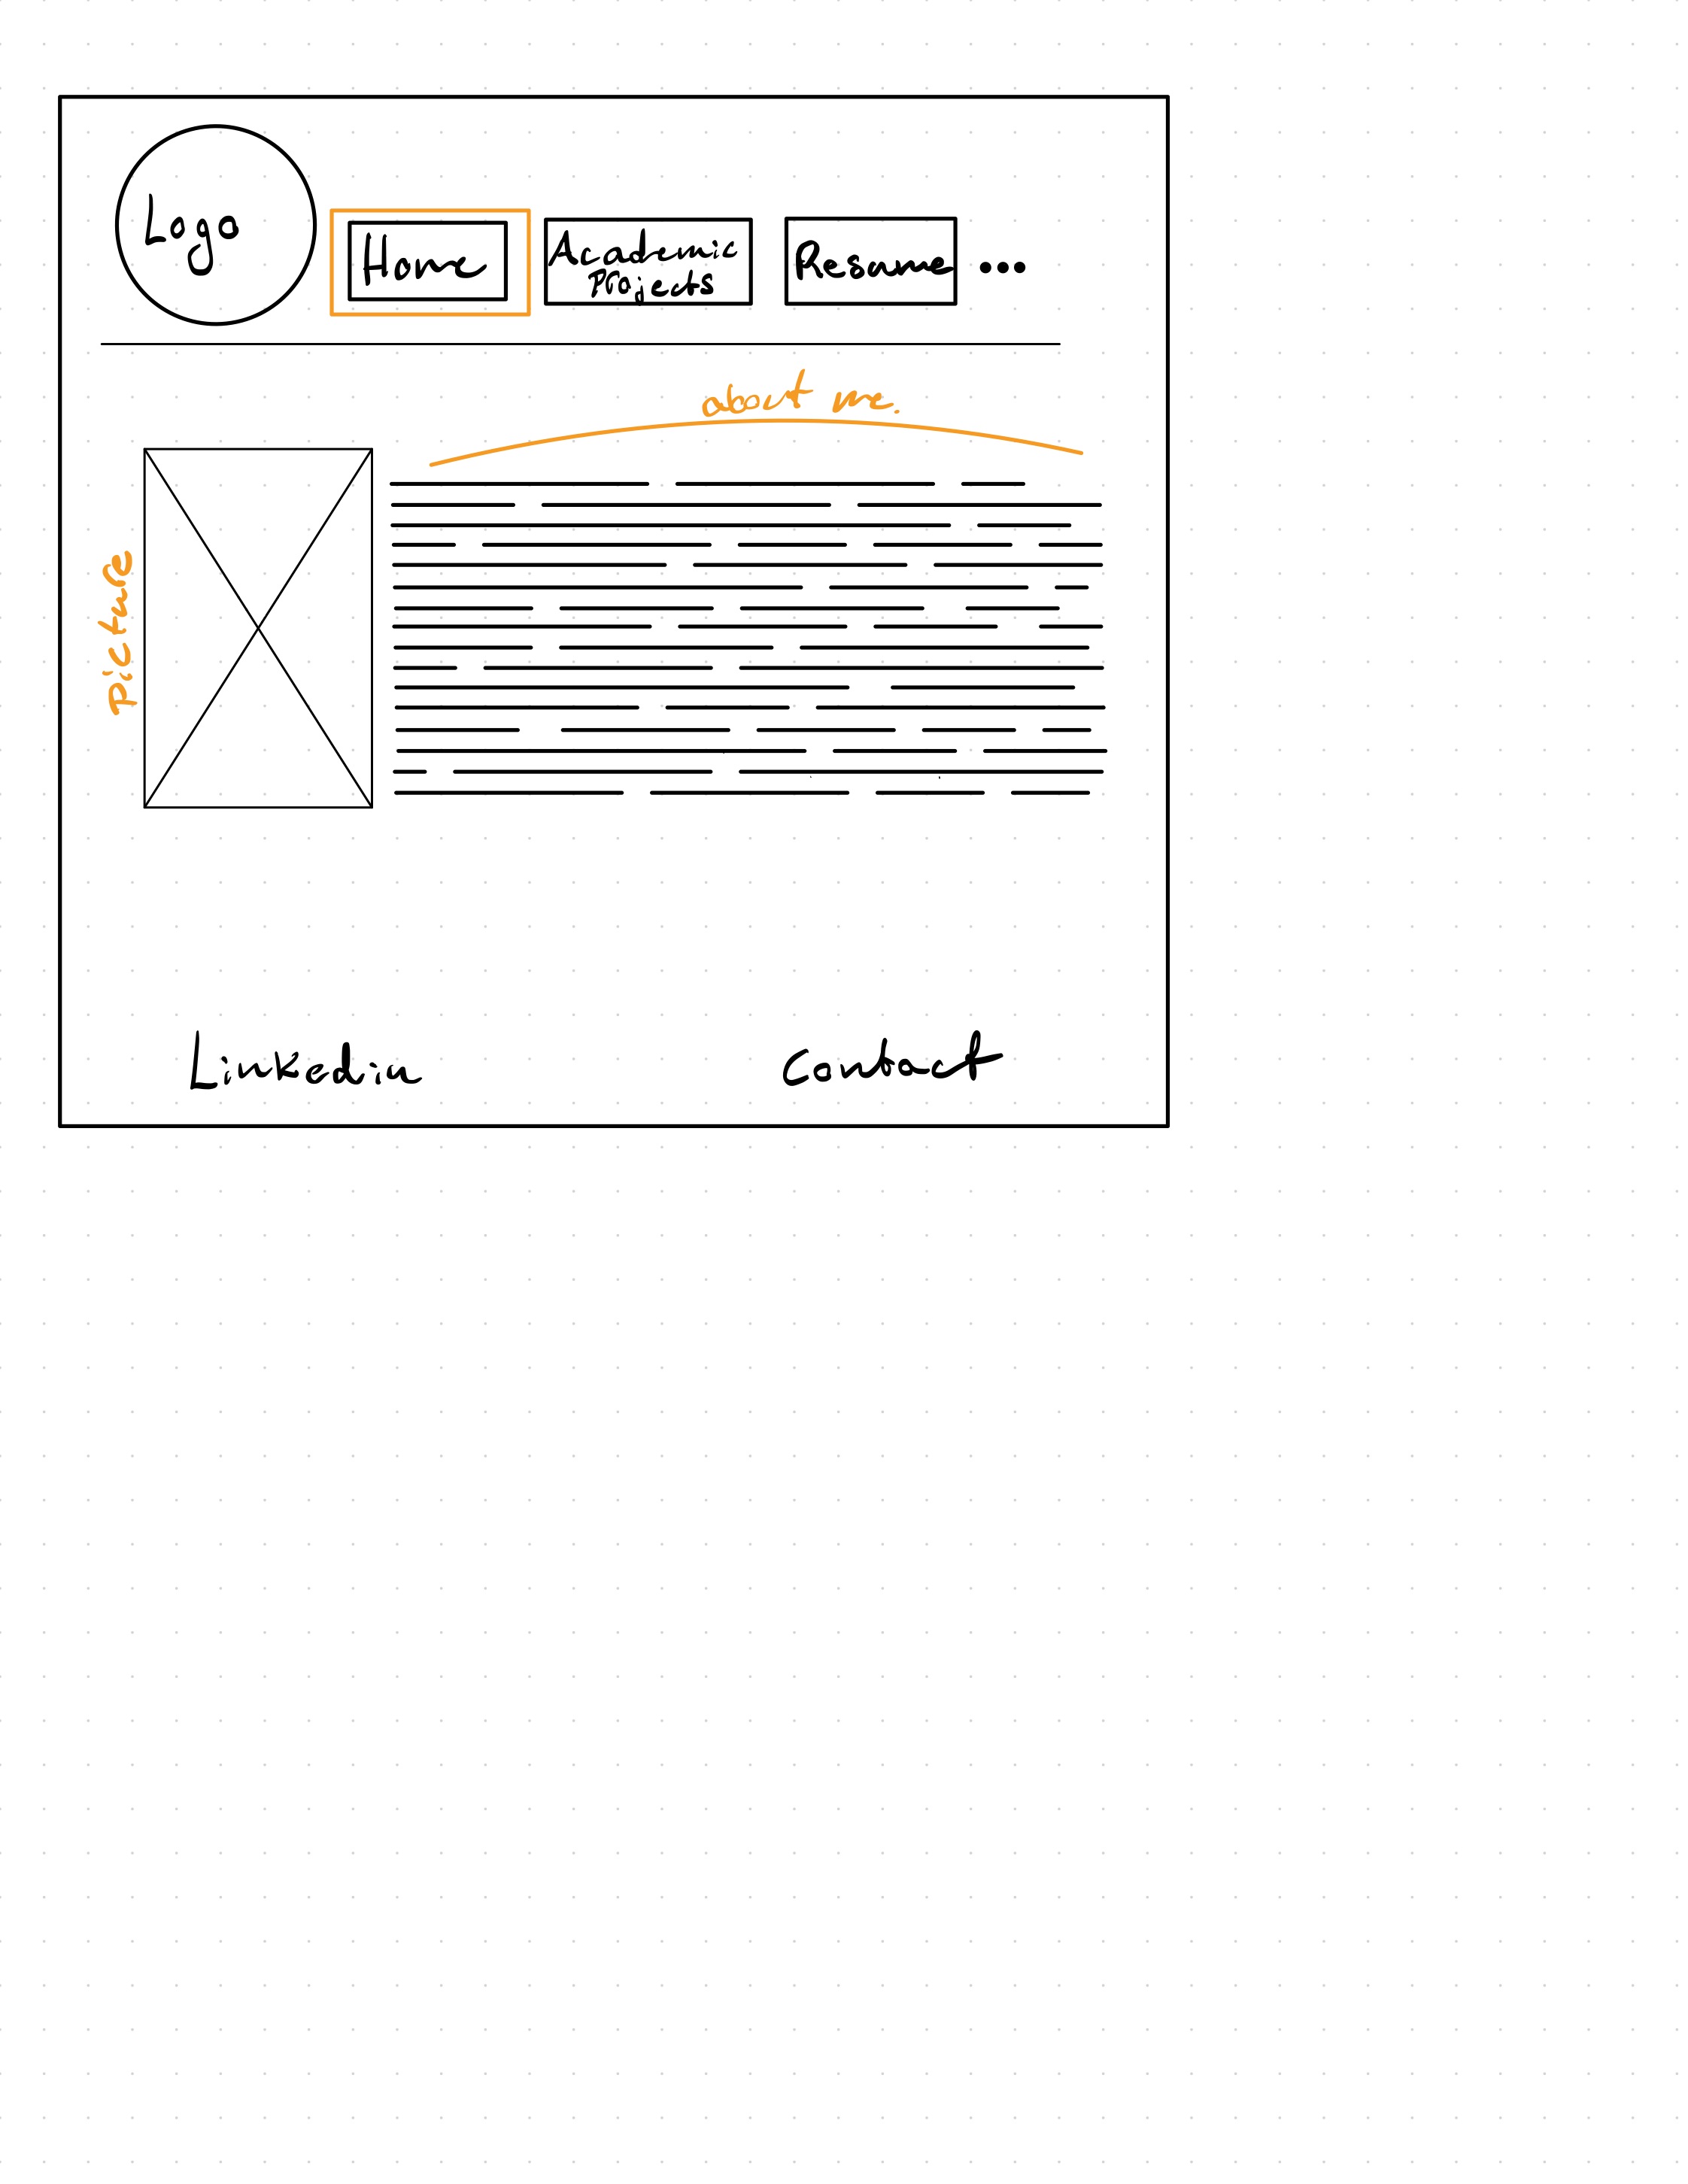 Logo
Home
Academic
Projects
Resume
about me.
picture
Linkedin
Contact